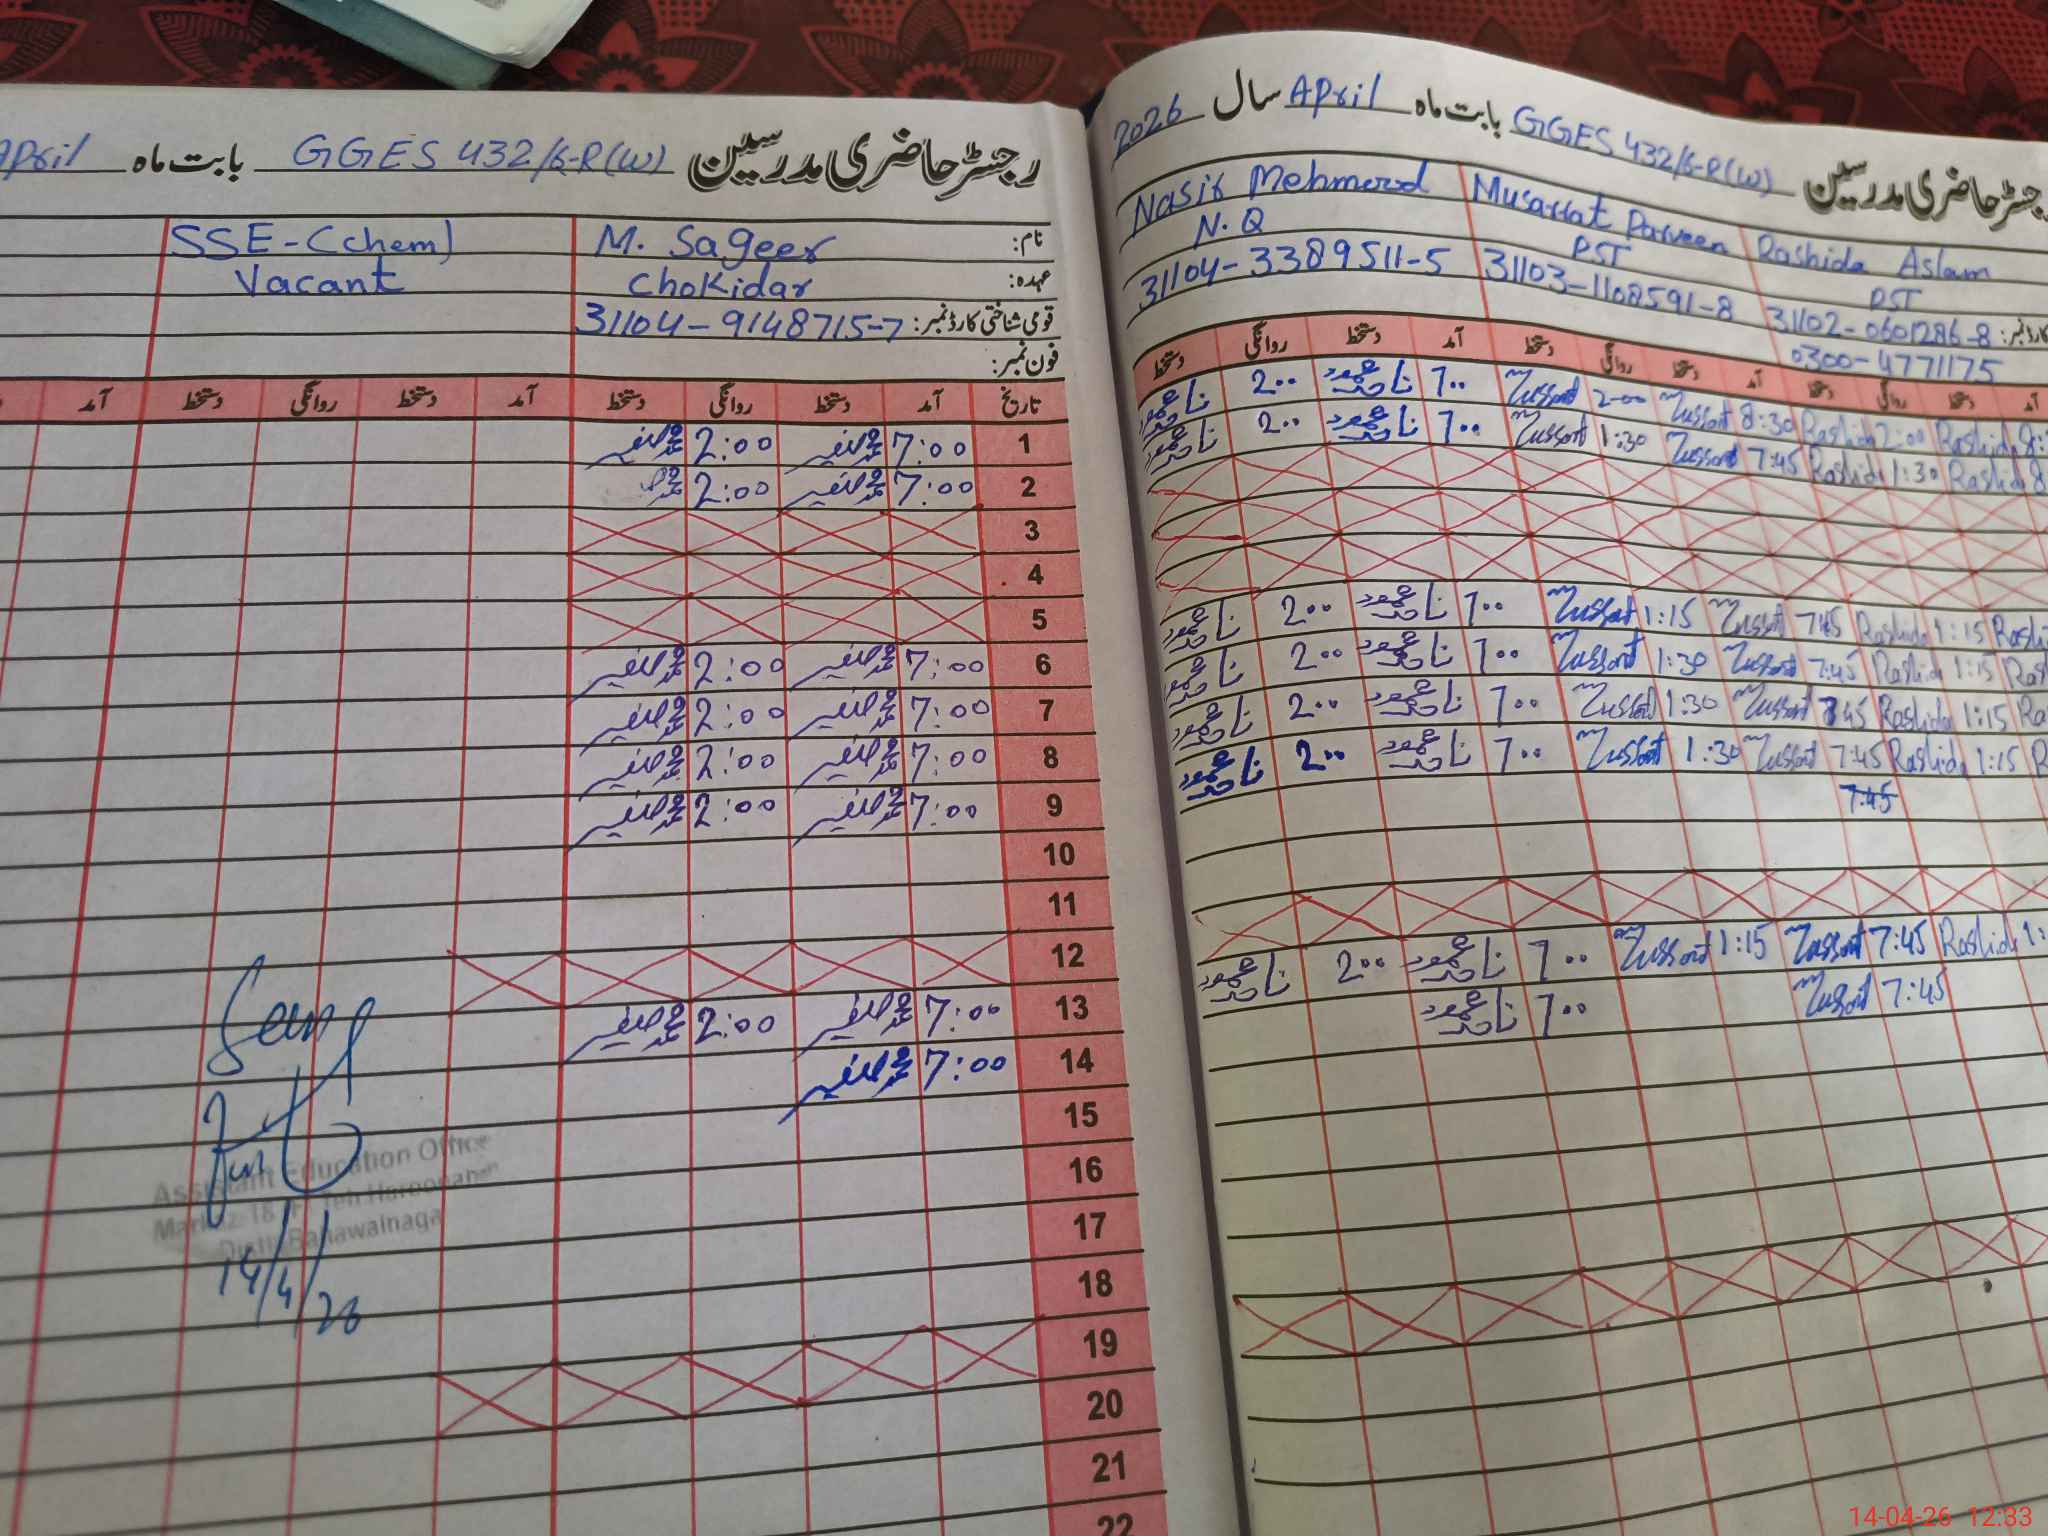 رجسٹر حاضری مدرسین GGES 432/6-R(W) بابت ماہ April
نام: M. Sageer SSE-(chem)
عہدہ: Chokidar Vacant
قومی شناختی کارڈ نمبر: 31104-9148715-7
فون نمبر:
تاریخ آمد دستخط روانگی دستخط آمد دستخط روانگی دستخط آمد
1 7:00 2:00
2 7:00 2:00
3
4
5
6 7:00 2:00
7 7:00 2:00
8 7:00 2:00
9 7:00 2:00
10
11
12
13 7:00 2:00
14 7:00
15
16
17
18
19
20
21
22
Seen
Assistant Education Office
Markaz 18
Distt: Bahawalnaga
14/4/26
رجسٹر حاضری مدرسین GGES 432/6-R(W) بابت ماہ April سال 2026
Nasir Mehmood Musarrat Parveen Rashida Aslam
N.Q PST PST
31104-3389511-5 31103-1108591-8 31102-0601286-8
0300-4771175
آمد دستخط روانگی دستخط آمد دستخط روانگی دستخط آمد دستخط روانگی دستخط
Rashida 2:00 Rashida 8:30 Mussarat 2:00 Mussarat 7:00 ناصر محمود 2:00 ناصر محمود
Rashida 1:30 Rashida 7:45 Mussarat 1:30 Mussarat 7:00 ناصر محمود 2:00 ناصر محمود
Rashida 1:15 Rashida 7:45 Mussarat 1:15 Mussarat 7:00 ناصر محمود 2:00 ناصر محمود
Rashida 1:15 Rashida 7:45 Mussarat 1:30 Mussarat 7:00 ناصر محمود 2:00 ناصر محمود
Rashida 1:15 Rashida 7:45 Mussarat 1:30 Mussarat 7:00 ناصر محمود 2:00 ناصر محمود
Rashida 1:15 Rashida 7:45 Mussarat 1:30 Mussarat 7:00 ناصر محمود 2:00 ناصر محمود
7:45
Rashida 7:45 Mussarat 1:15 Mussarat 7:00 ناصر محمود 2:00 ناصر محمود
7:45 Mussarat 7:00 ناصر محمود
14-04-26 12:33